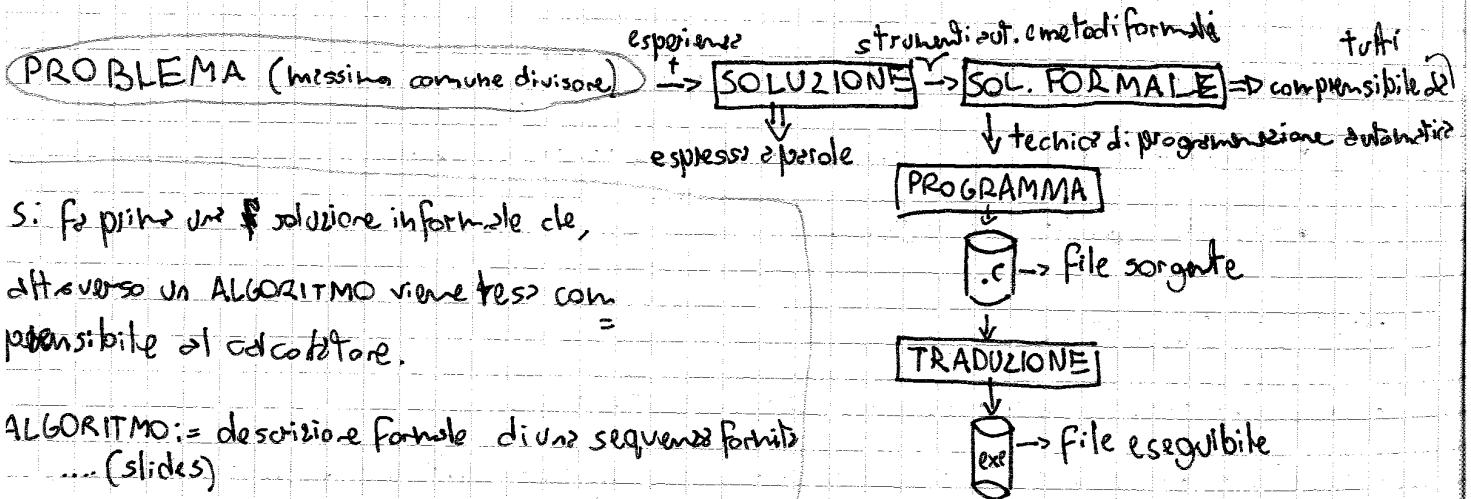 PROBLEMA (massimo comune divisore) → SOLUZIONE → SOL. FORMALE ⇒ comprensibile da
esperienza
strumenti aut. e metodi formali
tutti
espressa a parole
techica di programmazione automatica
PROGRAMMA
.c → file sorgente
TRADUZIONE
exe → file eseguibile
Si fa prima una soluzione informale che,
attraverso un ALGORITMO viene resa com
prensibile al calcolatore.
ALGORITMO:= descrizione formale di una sequenza fornita
.... (slides)